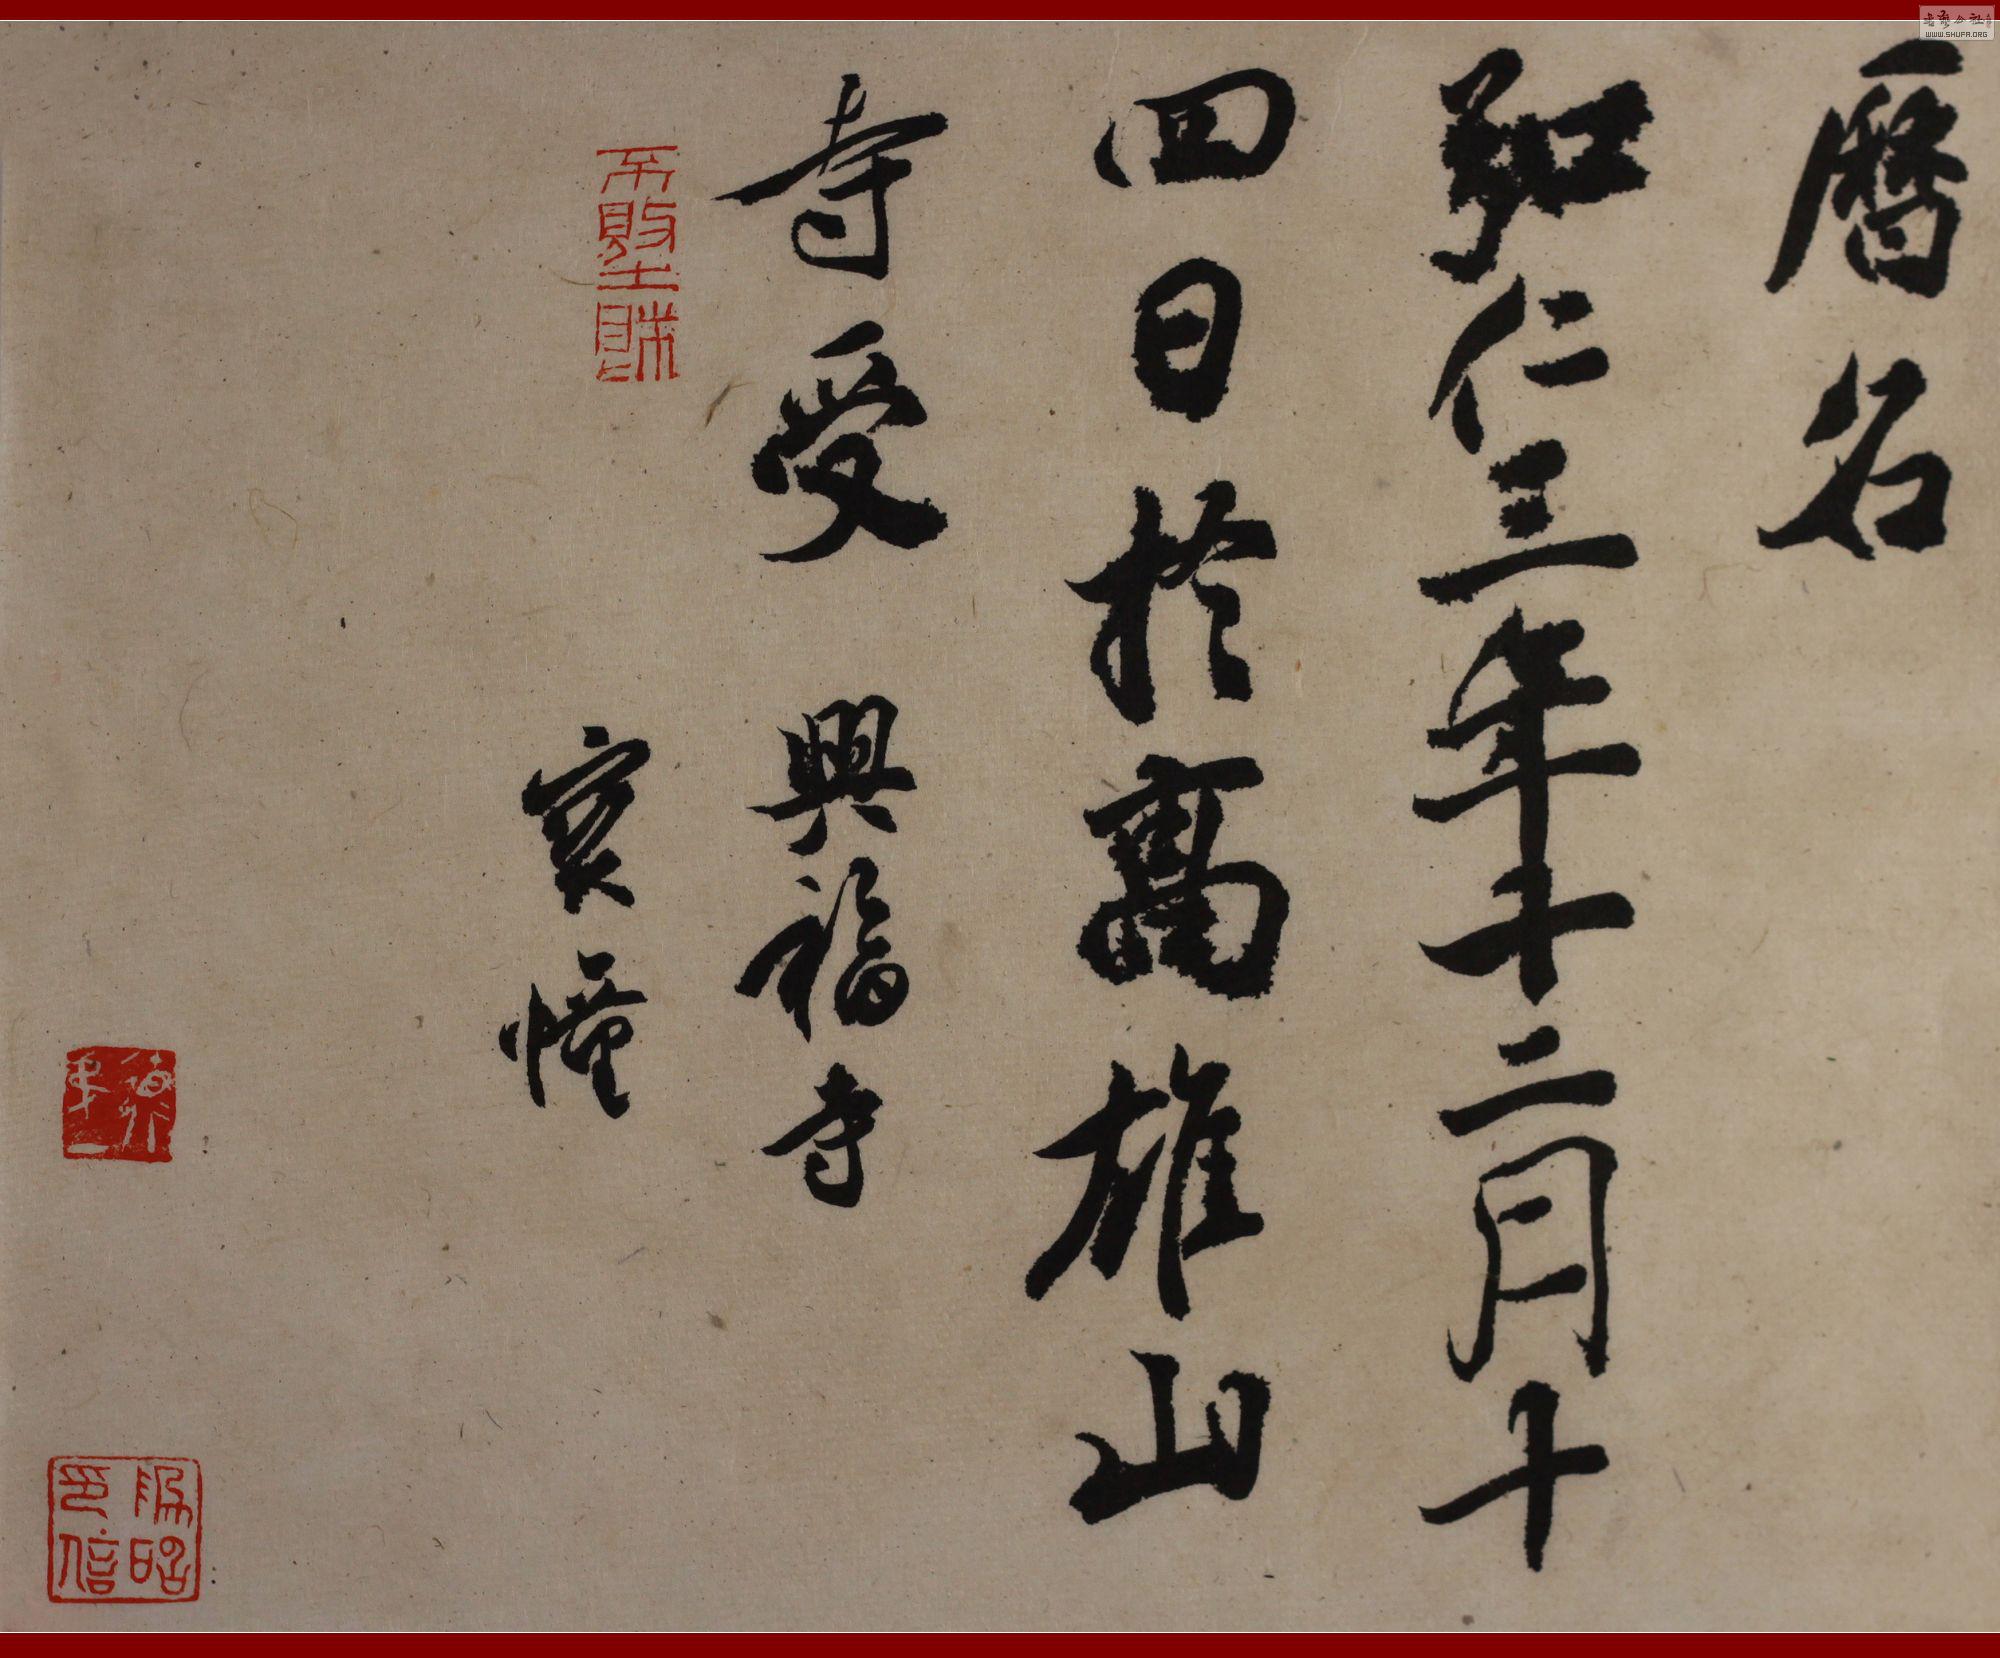 曆名
弘仁三年十二月十
四日於高雄山
寺受 興福寺
賓憧
印信
WWW.SHUFA.ORG